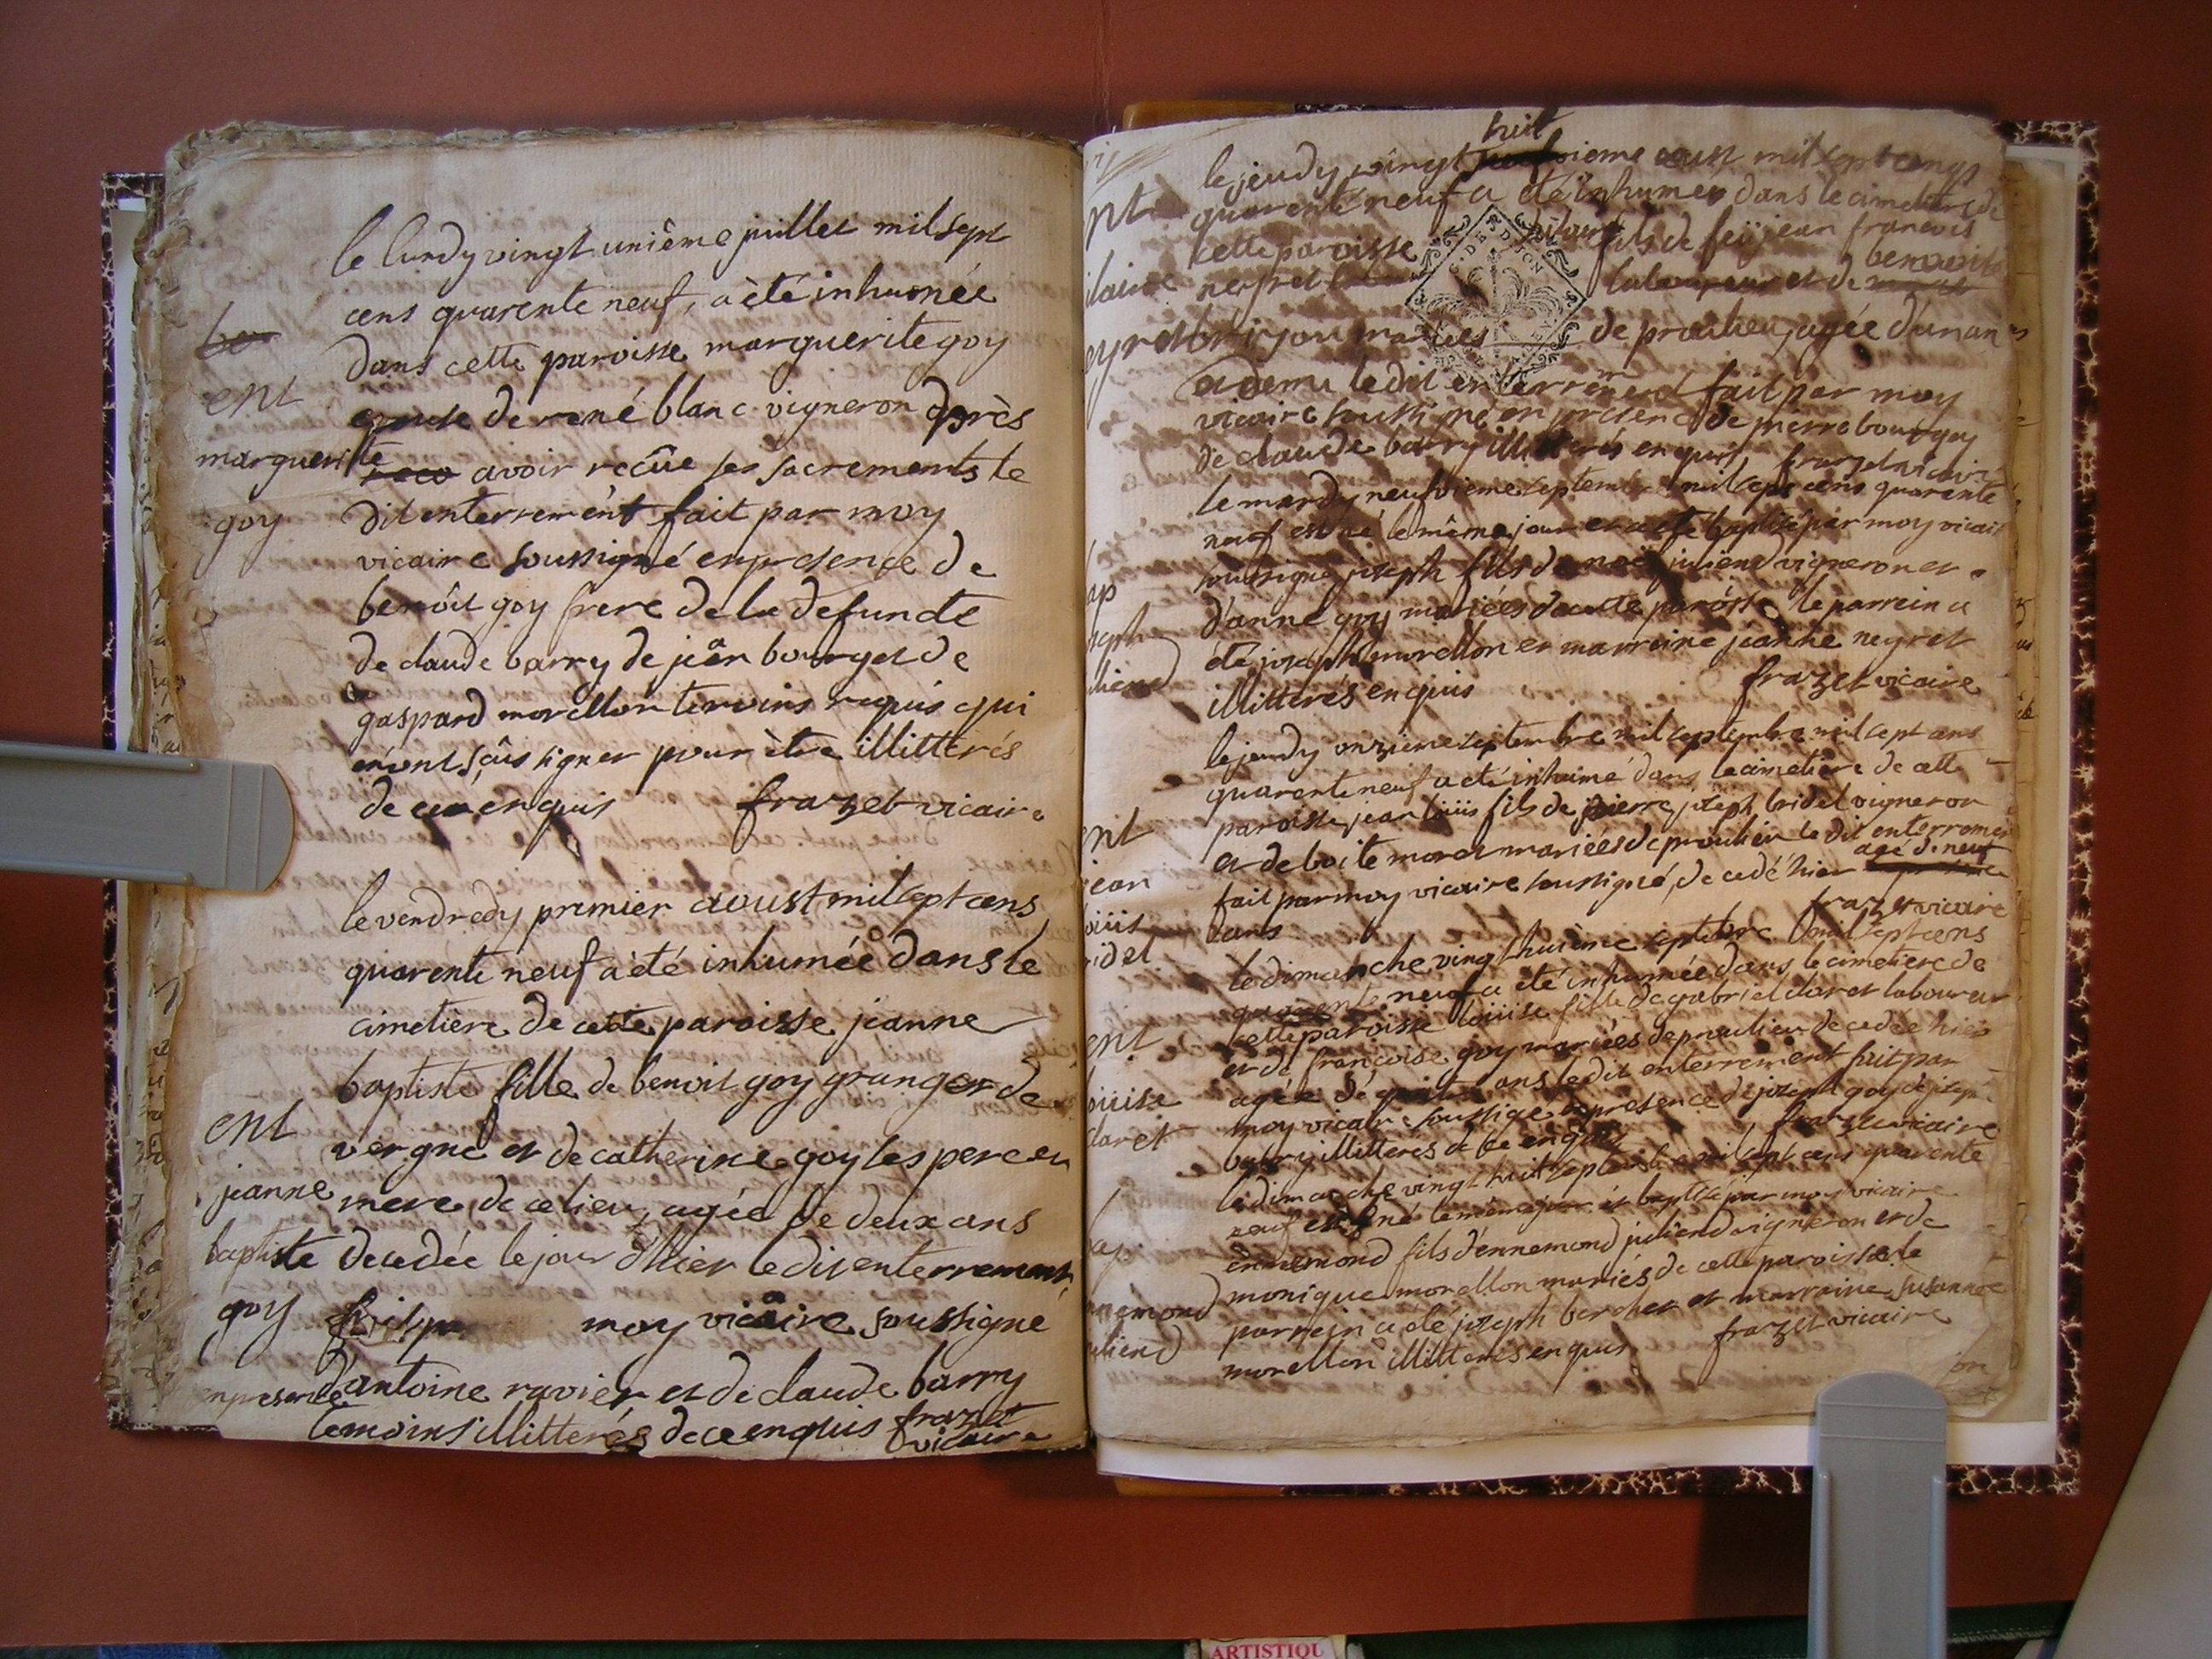 le lundy vingt unième juillet mil sept
cens quarente neuf, a èté inhumée
dans cette paroisse marguerite goy
ent
epouse de rené blanc vigneron après
marguerite
avoir recûe ses sacrements le
goy
dit enterrement fait par moy
vicaire soussigné en presence de
benôit goy frere de la defuncte
de claude barry de jean bourget de
gaspard morellon temoins requis qui
n'ont sçûs signer pour ètre illitterés
de ce enquis frazet vicaire
le vendredy premier aoust mil sept cens
quarente neuf a été inhumée dans le
cimetière de cette paroisse jeanne
baptiste fille de benoit goy granger de
ent
vergne et de catherine goy les pere et
jeanne
mere de ce lieu, agée de deux ans
baptiste
decedée le jour d'hier le dit enterrement
goy
fait par moy vicaire soussigné
en presence d'antoine ravier et de claude barry
temoins illitterés de ce enquis frazet
vicaire
huit
le jeudy vingt ieme aoust mil sept cens
nt
quarente neuf a été inhumer dans le cimetiere de
cette paroisse hilaire fils de feu jean francois
laire
neyret laboureur et de benoite
eyret
mariées de proulieu, agée d'un an
et demi le dit enterrement fait par moy
vicaire soussigné en presence de pierre bourgey
de claude barry illitterés enquis frazet vicaire
le mardy neufvieme septembre mil sept cens quarente
neuf est né le même jour et a été baptisé par moy vicair
ap
soussigné joseph fils de noel juliend vigneron et
seph
d'anne goy mariées de cette paroisse le parrein a
liend
été joseph morellon et marreine jeanne neyret
illitterés enquis frazet vicaire
le jeudy onzieme septembre mil septembre mil sept cens
quarente neuf a été inhumé dans le cimetière de cette
ent
paroisse jean loüis fils de pierre joseph bridet vigneron
jean
et de moret mariées de proulieu le dit enterremen
oüis
fait par moy vicaire soussigné, decedé hier agé de neuf
ridet
ans frazet vicaire
le dimanche vingt huitième septebre mil sept cens
quarente neuf a été inhumée dans le cimetiere de
ent
cette paroisse loüise fille de gabriel claret laboureur
et de françoise goy mariées de proulieu decedée hier
oüise
agée de ans le dit enterrement fait par
claret
moy vicaire soussigné en presence de joseph goy de joseph
barry illitterés de ce enquis frazet vicaire
le dimanche vingt huit septembre mil sept cens quarente
neuf est né le même jour et baptisé par moy vicaire
ap
ennemond fils d'ennemond juliend vigneron et de
nnemond
monique morellon mariés de cette paroisse le
uliend
parrein a été joseph berchet et marraine susanne
morellon illitterés enquis frazet vicaire
ARTISTIQU